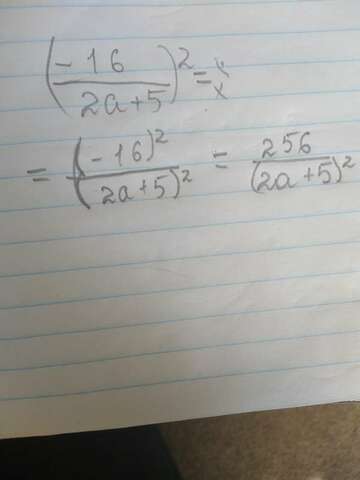 (-16/2a+5)² =
= (-16)²/(2a+5)² = 256/(2a+5)²